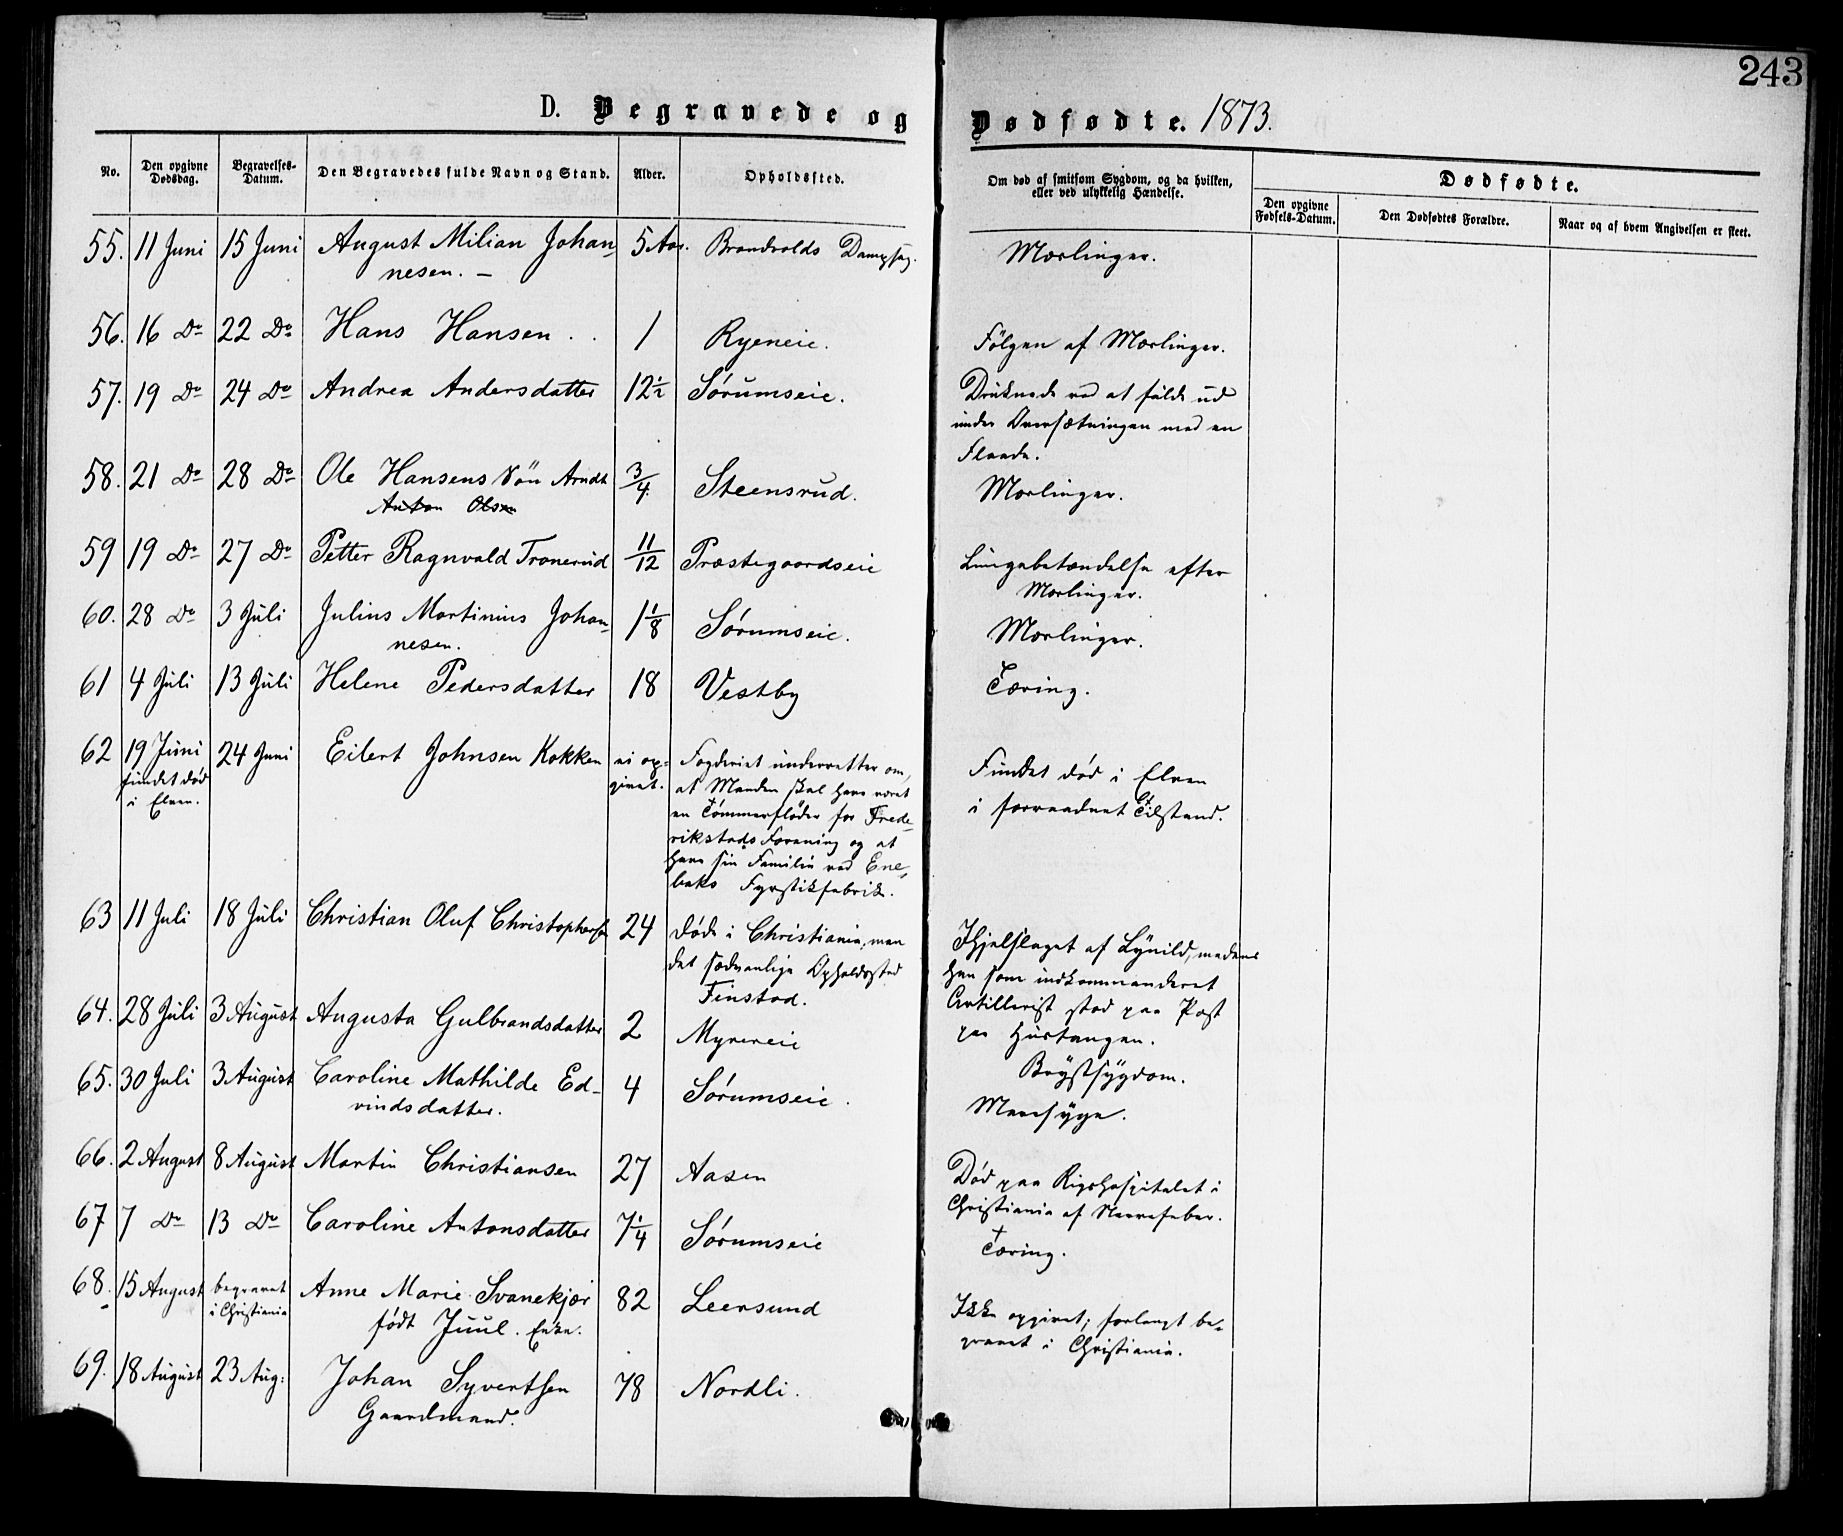 243
D. Begravede og Dødfødte. 1873.
No. Den opgivne Dødsdag. Begravelses-Datum. Den Begravedes fulde Navn og Stand. Alder. Opholdssted. Om død af smitsom Sygdom, og da hvilken, eller ved ulykkelig Hændelse. Dødfødte.
Den opgivne Fødsels-Datum. Den Dødfødtes Forældre. Naar og af hvem Angivelsen er skeet.
55. 11 Juni 15 Juni August Milian Johan- 5 Aar. Brandvolds Dampsag. Mæslinger.
nesen. –
56. 16 Do 22 Do Hans Hansen . . 1 Ryeneie. Følgen af Mæslinger.
57. 19 Do 24 Do Andrea Andersdatter 12½ Sørumseie. Druknede ved at falde ud
under Oversætningen med en
Flaade.
58. 21 Do 28 Do Ole Hansens Søn Arndt 3/4 Steensrud. Mæslinger.
Anton Olsen
59 19 Do 27 Do Petter Ragnvald Tronerud 11/12 Præstegaardseie Lungebetændelse efter
Mæslinger.
60. 28 Do 3 Juli Julius Martinius Johan- 1 1/8 Sørumseie. Mæslinger.
nesen.
61 4 Juli 13 Juli Helene Pedersdatter 18 Vestby Tæring.
62 19 Juni 24 Juni Eilert Johnsen Kokken ei op- Fogderiet underretter om, Fundet død i Elven
fundet død givet. at Manden skal have været i forraadnet Tilstand.
i Elven. en Tømmerfløder for Frede-
rikstads Forening og at
have sin Familie ved Ene-
baks Fyrstikfabrik.
63 11 Juli 18 Juli Christian Oluf Christophersen 24 Døde i Christiania, men Ihjelslaget af Lynild, medens
det sædvanlige Opholdssted han som indkommanderet
Finstad. Artillerist stod paa Post
paa Hustangen.
64. 28 Juli 3 August Augusta Gulbrandsdatter 2 Myrereie Brystsygdom.
65. 30 Juli 3 August Caroline Mathilde Ed- 4 Sørumseie. Mavesyge.
vindsdatter.
66. 2 August 8 August Martin Christiansen 27 Aasen Død paa Rigshospitalet i
Christiania af Nervefeber.
67 7 Do 13 Do Caroline Antonsdatter 7¼ Sørumseie Tæring.
68. 15 August begravet Anne Marie Svanekjær 82 Leersund Ikke opgivet; forlangt be-
i Christiania født Juul. Enke. gravet i Christiania.
69. 18 August 23 Aug: Johan Syvertsen 78 Nordli.
Gaardmand.